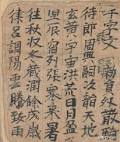 千字文 勑員外散騎
侍郎周興嗣次韻天地
玄黃宇宙洪荒日月盈
昃辰宿列張寒来暑
往秋收冬藏閏餘成歲
律呂調陽雲騰致雨